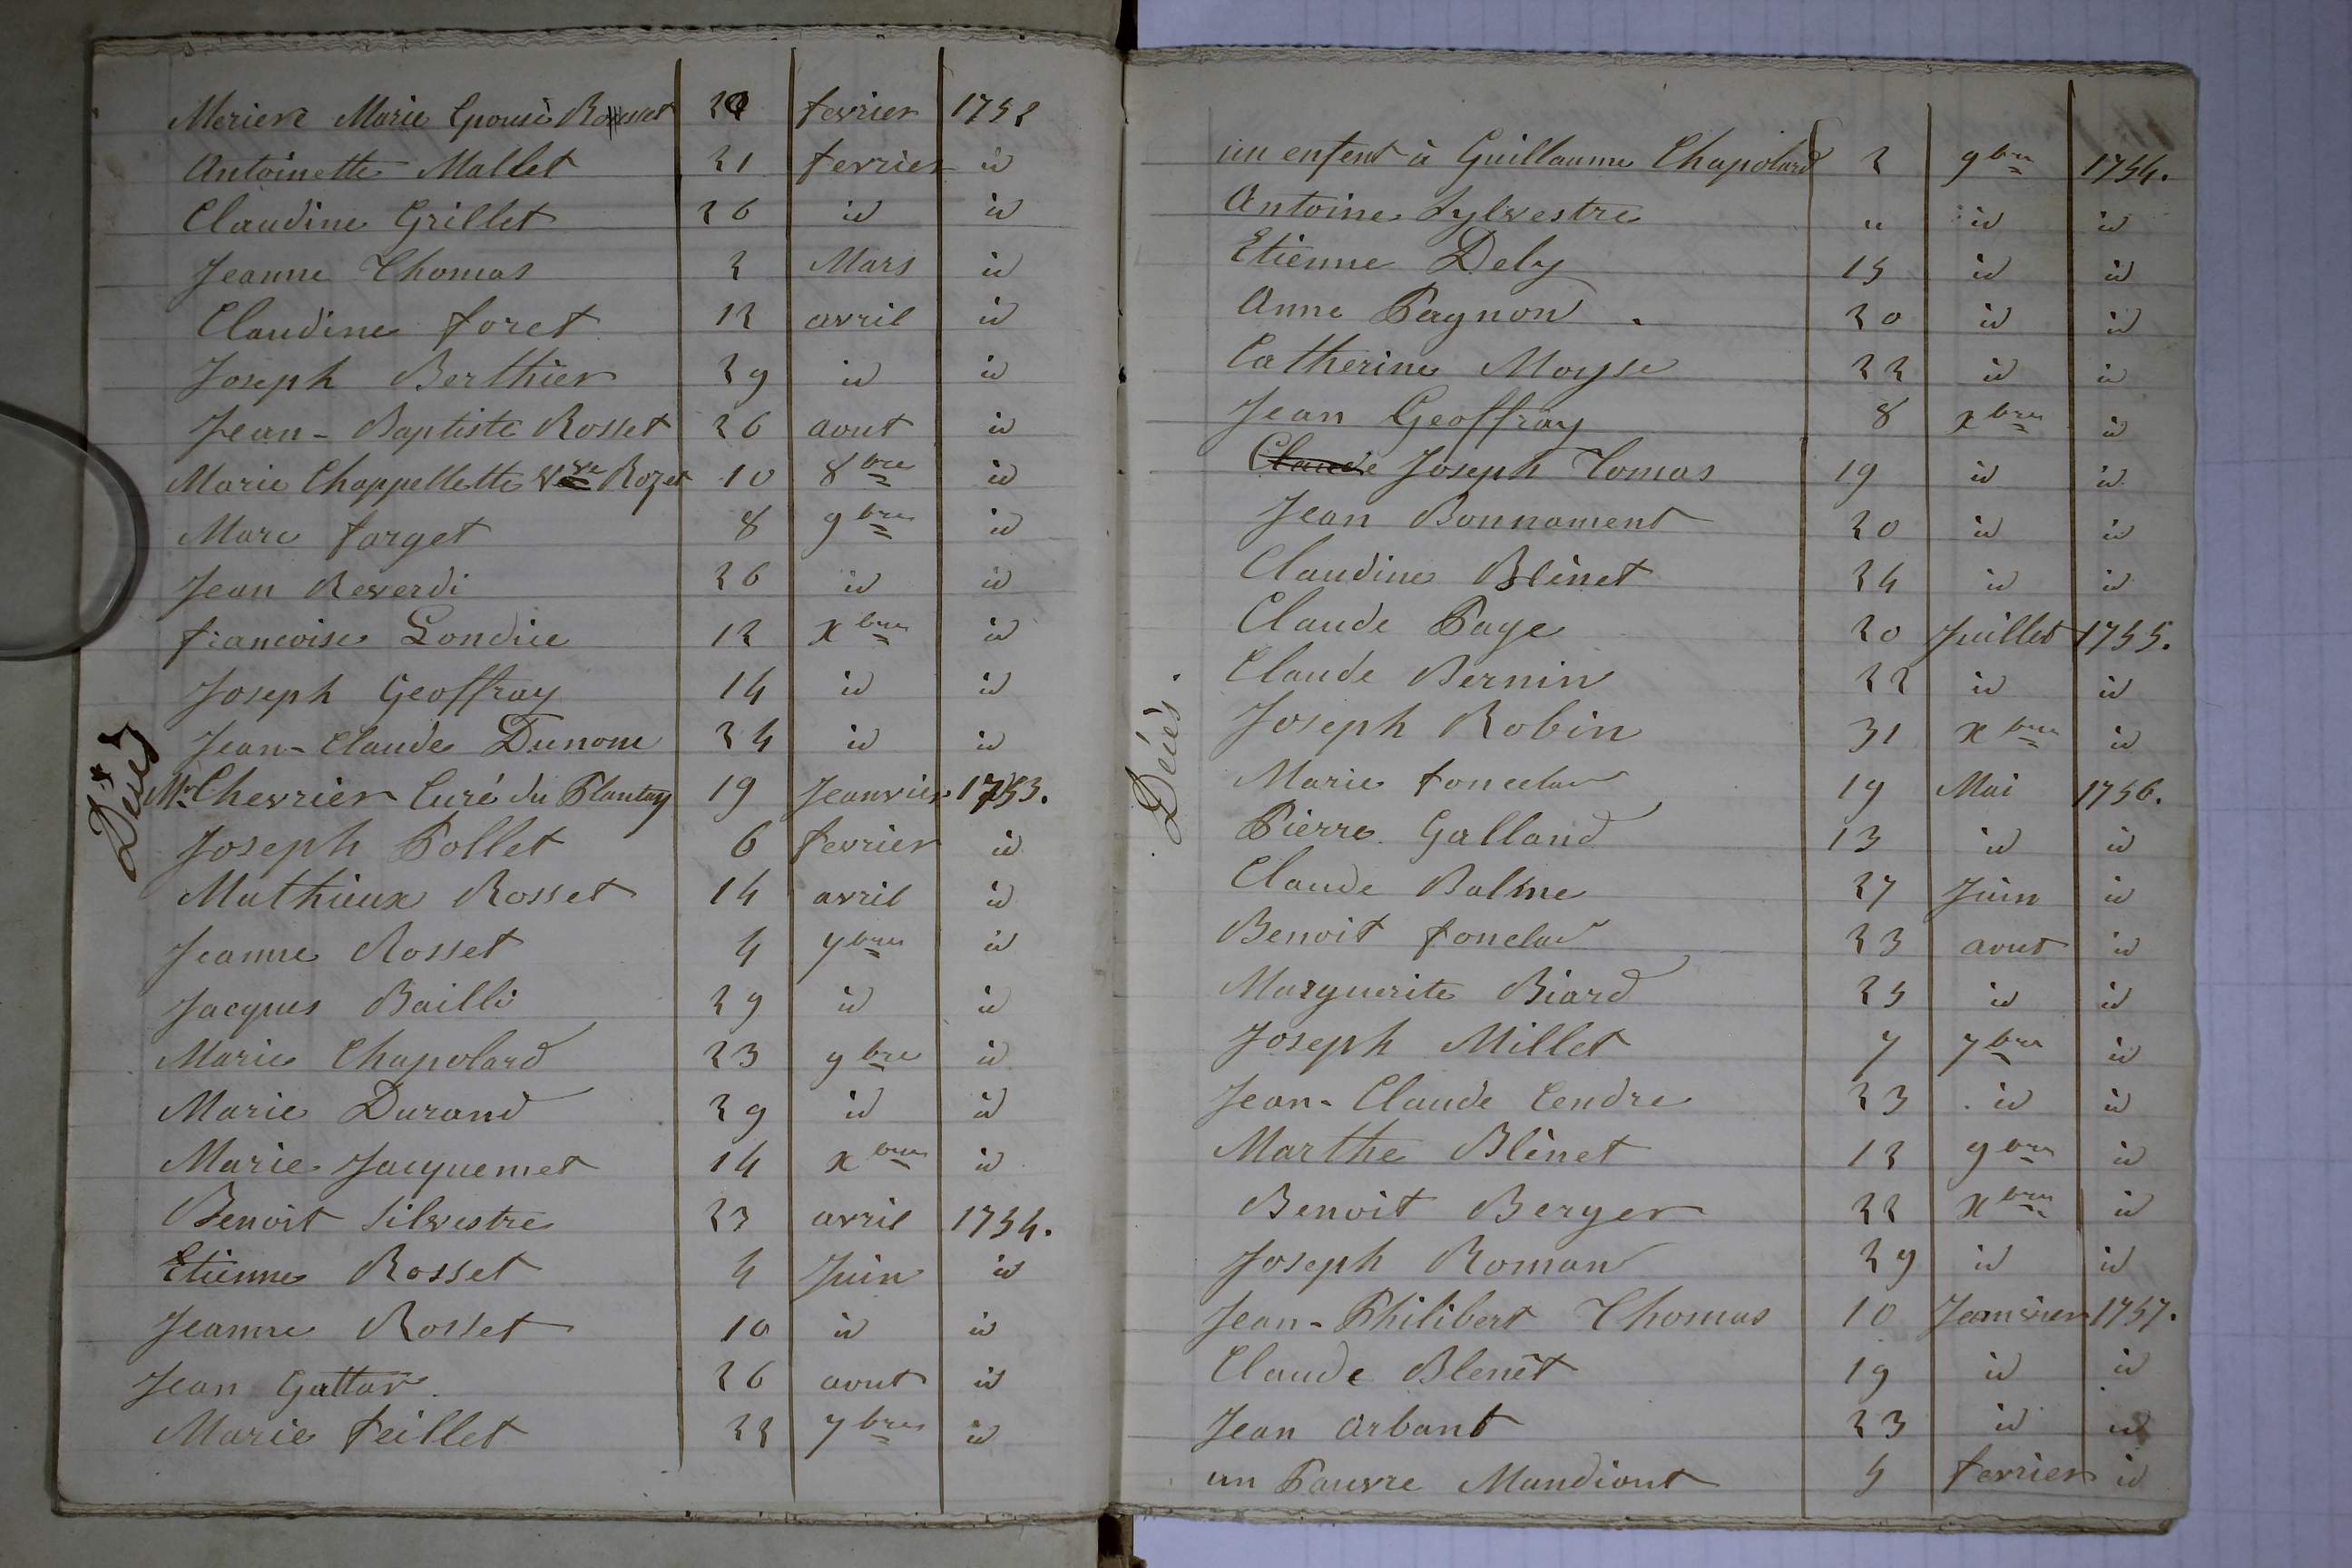 Décès
Meriere Marie Epouse Rosset 20 fevrier 1752
Antoinette Mallet 21 fevrier id
Claudine Grillet 26 id id
Jeanne Thomas 2 Mars id
Claudine foret 12 avril id
Joseph Berthier 29 id id
Jean-Baptiste Rosset 26 aout id
Marie Chappellette Vve Rozet 10 8bre id
Marc forget 8 9bre id
Jean Reverdi 26 id id
francoise Londice 12 xbre id
Joseph Geoffray 14 id id
Jean-Claude Dunom 24 id id
Mr Chevrier Curé du Plantay 19 Jeanvier 1753.
Joseph Pollet 6 fevrier id
Mathieux Rosset 14 avril id
Jeanne Rosset 4 7bre id
Jacques Bailli 29 id id
Marie Chapolard 23 9bre id
Marie Durand 29 id id
Marie Jacquemet 14 xbre id
Benoit Silvestre 23 avril 1754.
Etienne Rosset 4 Juin id
Jeanne Rosset 10 id id
Jean Guttar 26 aout id
Marie feillet 22 7bre id
Décès.
un enfent à Guillaume Chapolard 2 9bre 1754.
Antoine Sylvestre " id id
Etienne Dely 15 id id
Anne Pagnon . 20 id id
Catherine Moyse 22 id id
Jean Geoffray 8 xbre id
Claude Joseph Tomas 19 id id
Jean Bonnament 20 id id
Claudine Blènet 24 id id
Claude Paye 20 Juillet 1755.
Claude Bernin 22 id id
Joseph Robin 31 xbre id
Marie fonclar 19 Mai 1756.
Pierre Galland 13 id id
Claude Balme 27 Juin id
Benoit fonclar 23 aout id
Marguerite Biard 25 id id
Joseph Millet 7 7bre id
Jean-Claude Cendre 23 id id
Marthe Blènet 12 9bre id
Benoit Berger 22 xbre id
Joseph Roman 29 id id
Jean-Philibert Thomas 10 Jeanvier 1757.
Claude Blenèt 19 id id
Jean arbant 23 id id
un Pauvre Mandiant 5 fevrier id